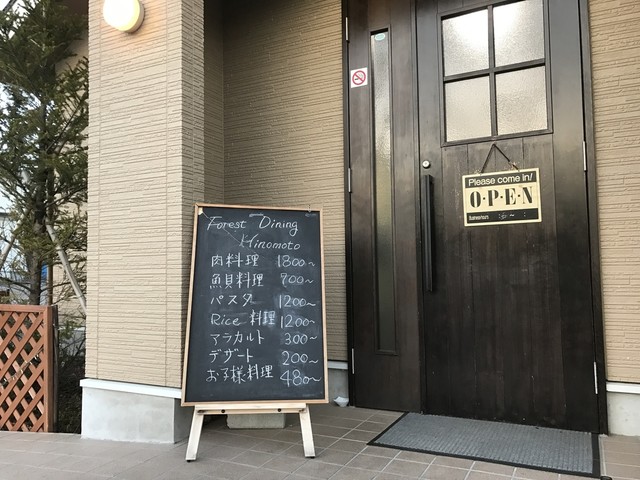 Forest Dining
Hinomoto
肉料理 1800〜
魚貝料理 900〜
パスタ 1200〜
Rice 料理 1200〜
アラカルト 300〜
デザート 200〜
お子様料理 480〜
Please come in!
O·P·E·N